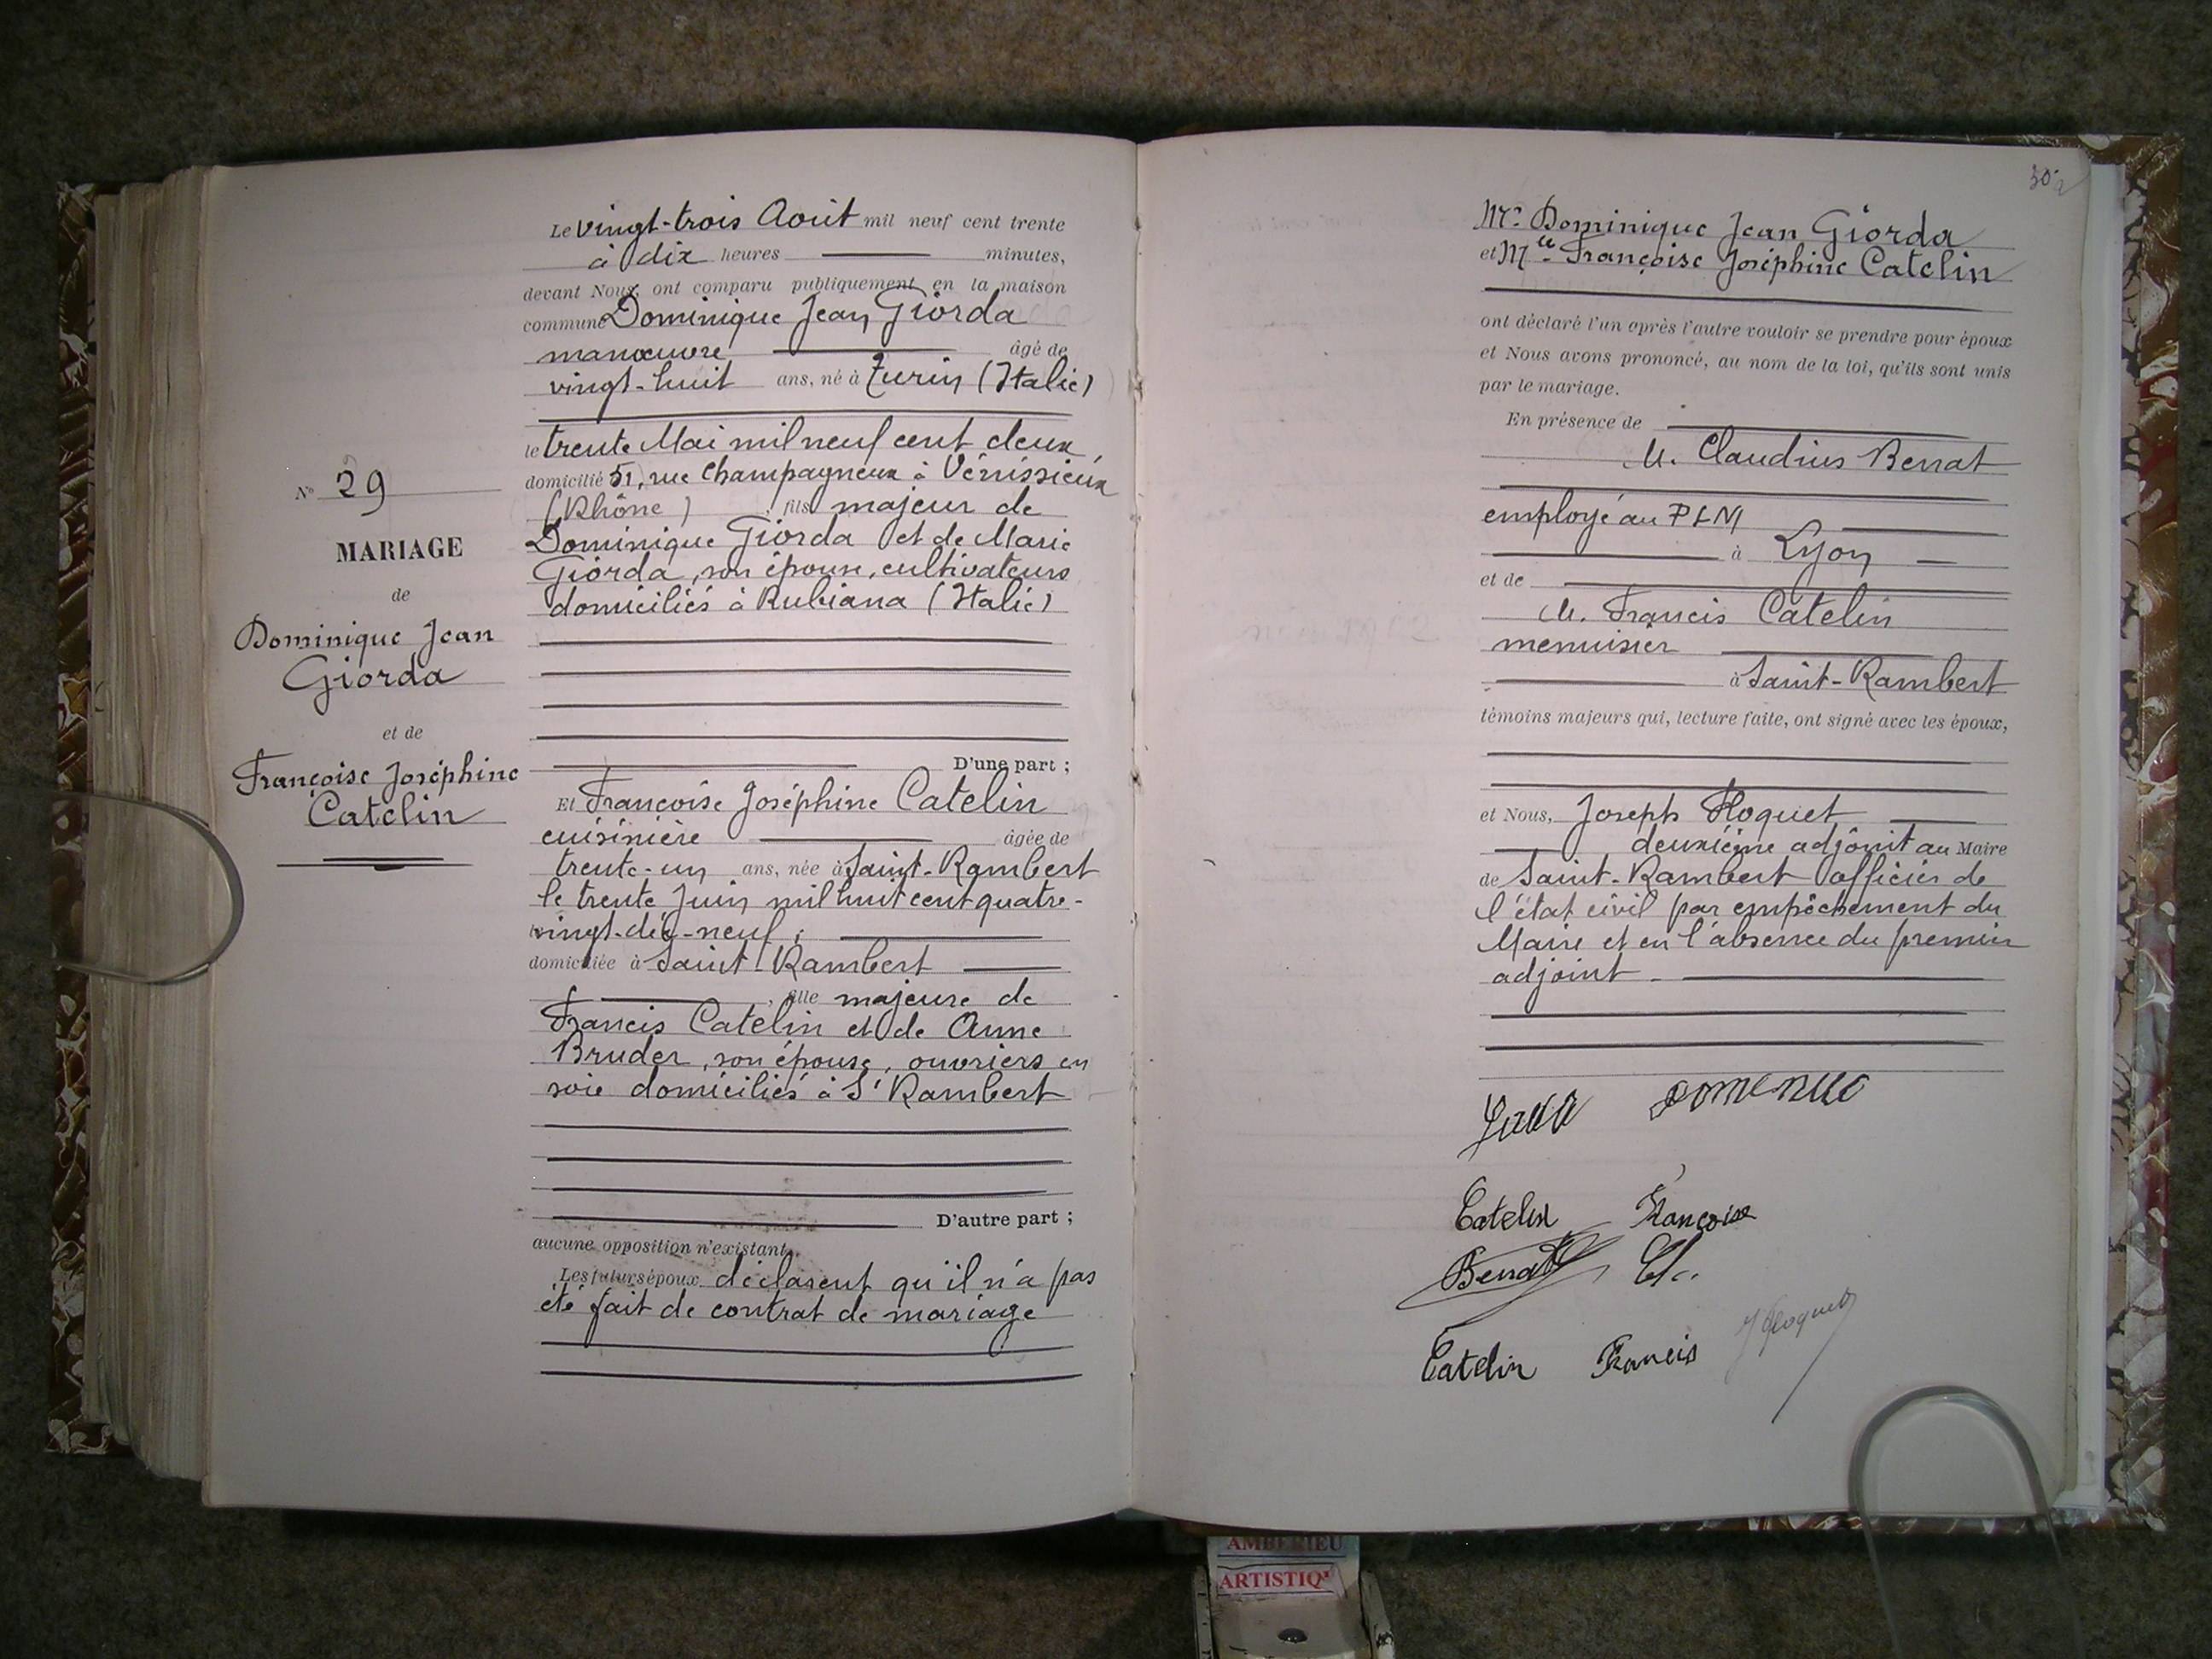 Le vingt-trois Août mil neuf cent trente
à dix heures minutes,
devant Nous, ont comparu publiquement en la maison
commune Dominique Jean Giorda
manœuvre âgé de
vingt-huit ans, né à Turin (Italie)
le trente Mai mil neuf cent deux,
domicilié 51, rue Champagneux à Vénissieux
(Rhône), fils majeur de
Dominique Giorda et de Marie
Giorda, son épouse, cultivateurs
domiciliés à Rubiana (Italie)
D'une part ;
Et Françoise Joséphine Catelin
cuisinière âgée de
trente-un ans, née à Saint-Rambert
le trente Juin mil huit cent quatre-
vingt-dix-neuf ;
domiciliée à Saint-Rambert
, fille majeure de
Francis Catelin et de Anne
Bruder, son épouse, ouvriers en
soie domiciliés à St Rambert
D'autre part ;
aucune opposition n'existant.
Les futurs époux déclarent qu'il n'a pas
été fait de contrat de mariage
No 29
MARIAGE
de
Dominique Jean
Giorda
et de
Françoise Joséphine
Catelin
Mr Dominique Jean Giorda
et Mlle Françoise Joséphine Catelin
ont déclaré l'un après l'autre vouloir se prendre pour époux
et Nous avons prononcé, au nom de la loi, qu'ils sont unis
par le mariage.
En présence de
M. Claudius Berrat
employé au PLM
à Lyon
et de
M. Francis Catelin
menuisier
à Saint-Rambert
témoins majeurs qui, lecture faite, ont signé avec les époux,
et Nous, Joseph Hoquet
deuxième adjoint au Maire
de Saint-Rambert officier de
l'état civil par empêchement du
Maire et en l'absence du premier
adjoint.
Catelin Françoise
Berrat Cl.
Catelin Francis
AMBERIEU
ARTISTIQ